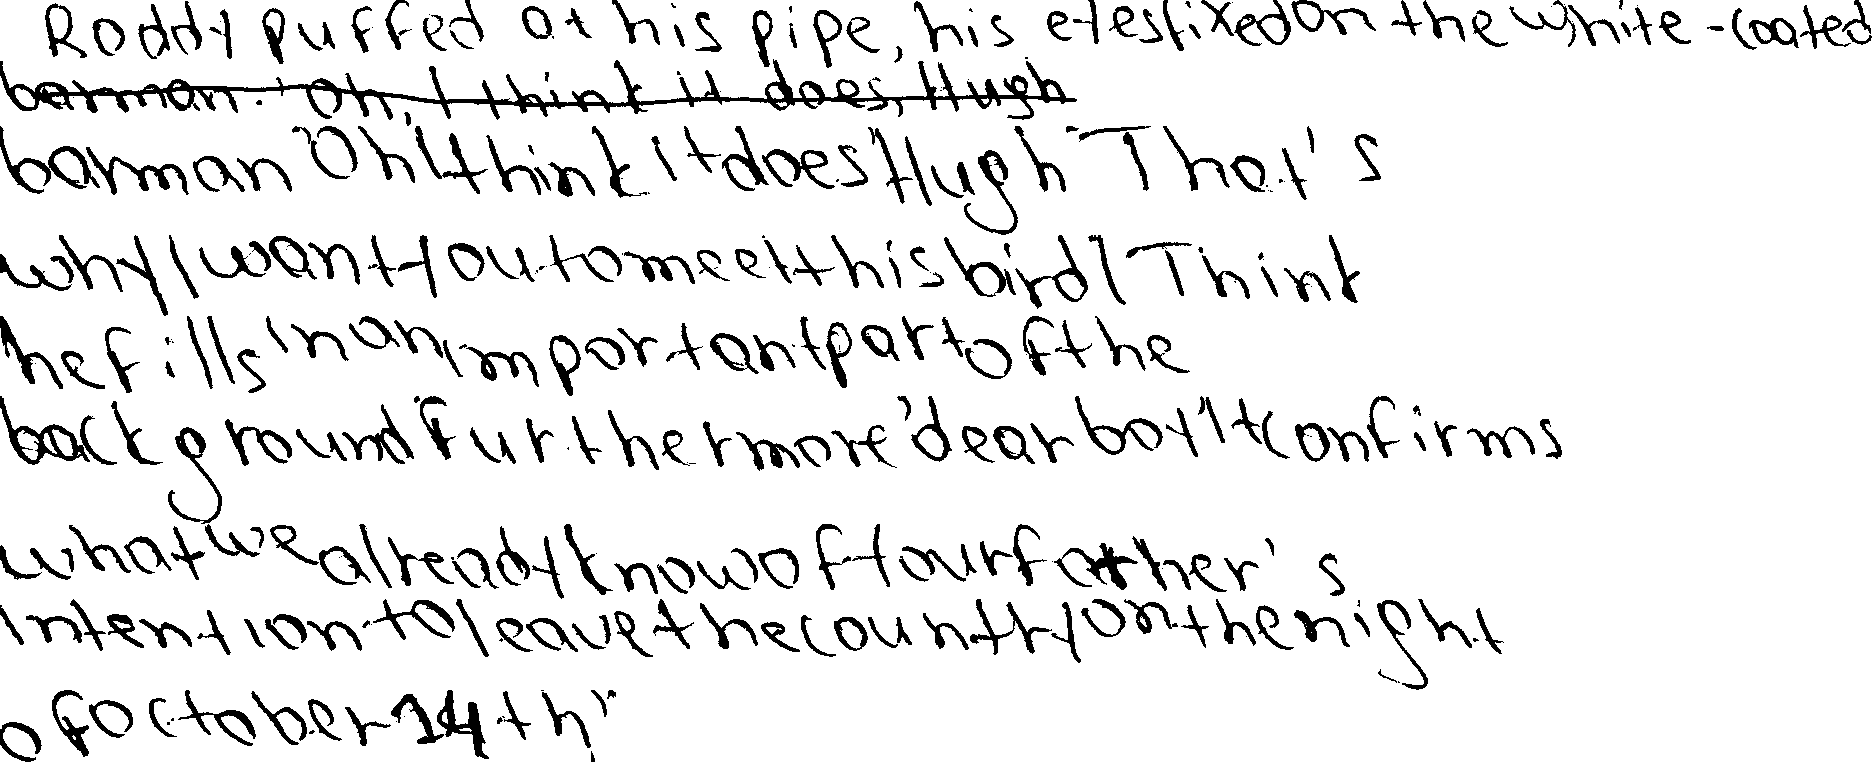 Roddy puffed at his pipe, his eyes fixed on the white-coated
barman. "Oh, I think it does, Hugh
barman "Oh, I think it does, Hugh" That's
why I want you to meet this bird I Think
he fills in an important part of the
background Furthermore, dear boy, it confirms
what we already know of your father's
intention to leave the country on the night
of October 14th"